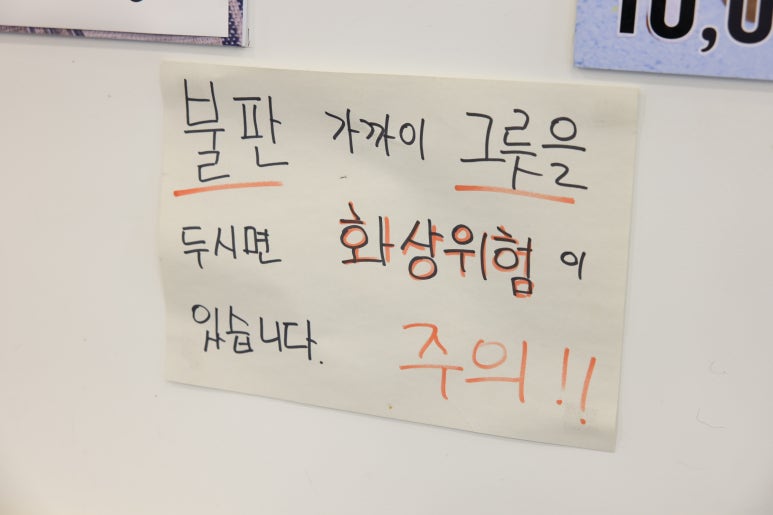 10,0
불판 가까이 그릇을
두시면 화상위험이
있습니다. 주의!!